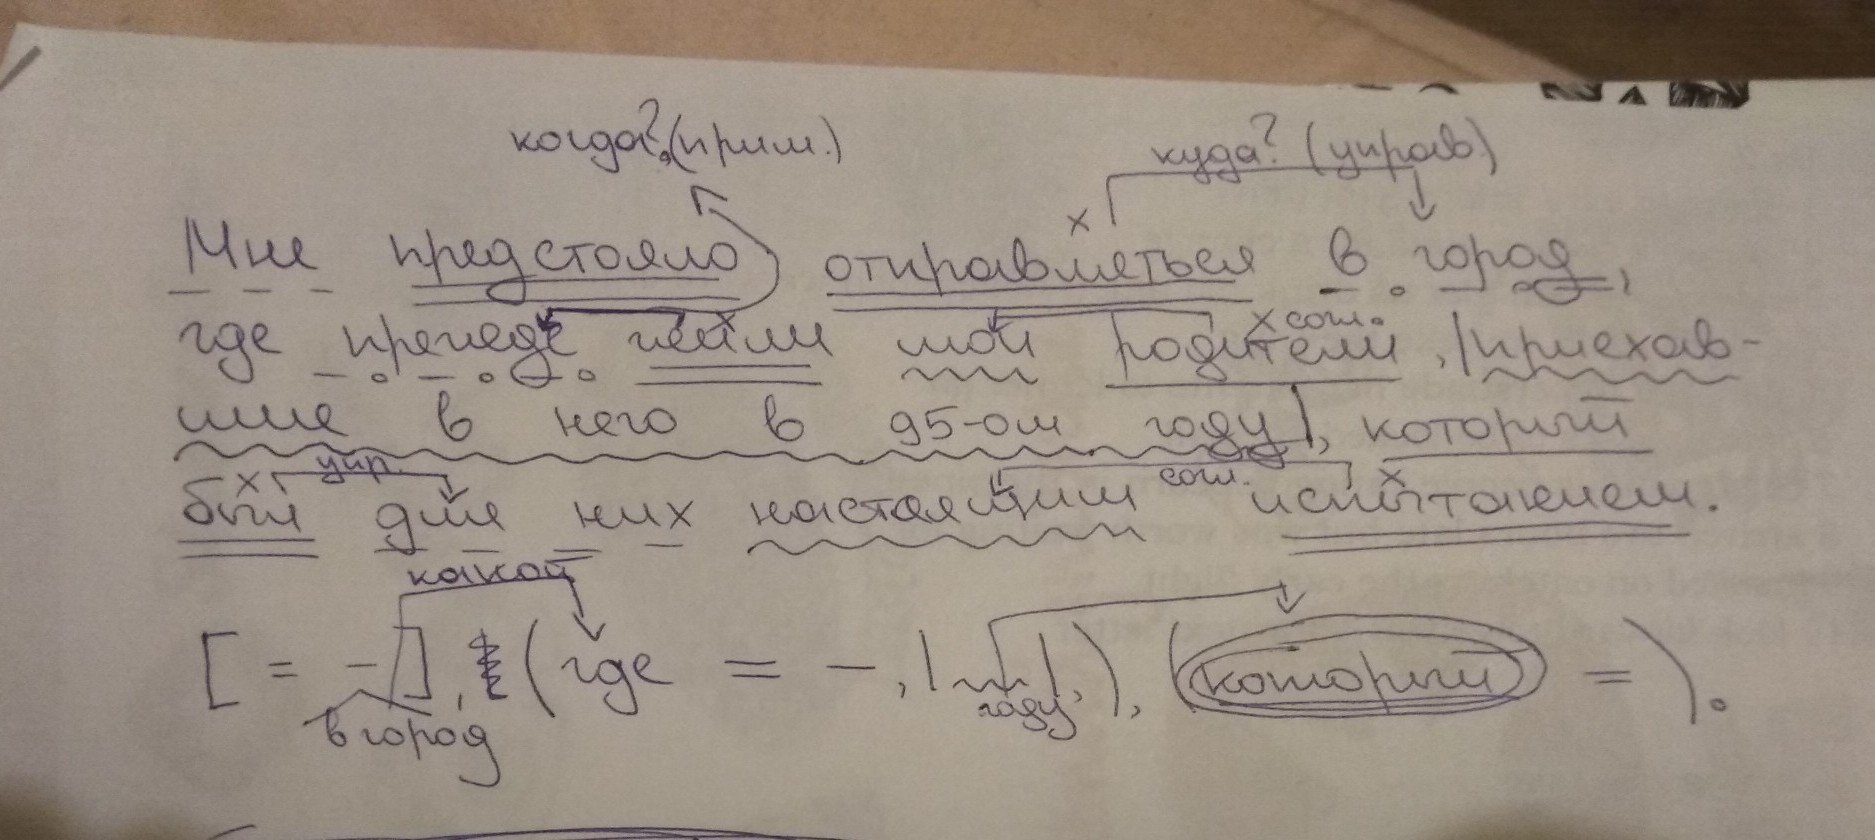 когда? (прим.) куда? (управ)
Мне предстояло отправляться в город,
где прежде жили мои родители, |приехав-
сог.
шие в него в 95-ом году|, который
упр. сог.
был для них настоящим испытанием.
какой
[= -], (где = -, | |, ), (который = ).
году
в город